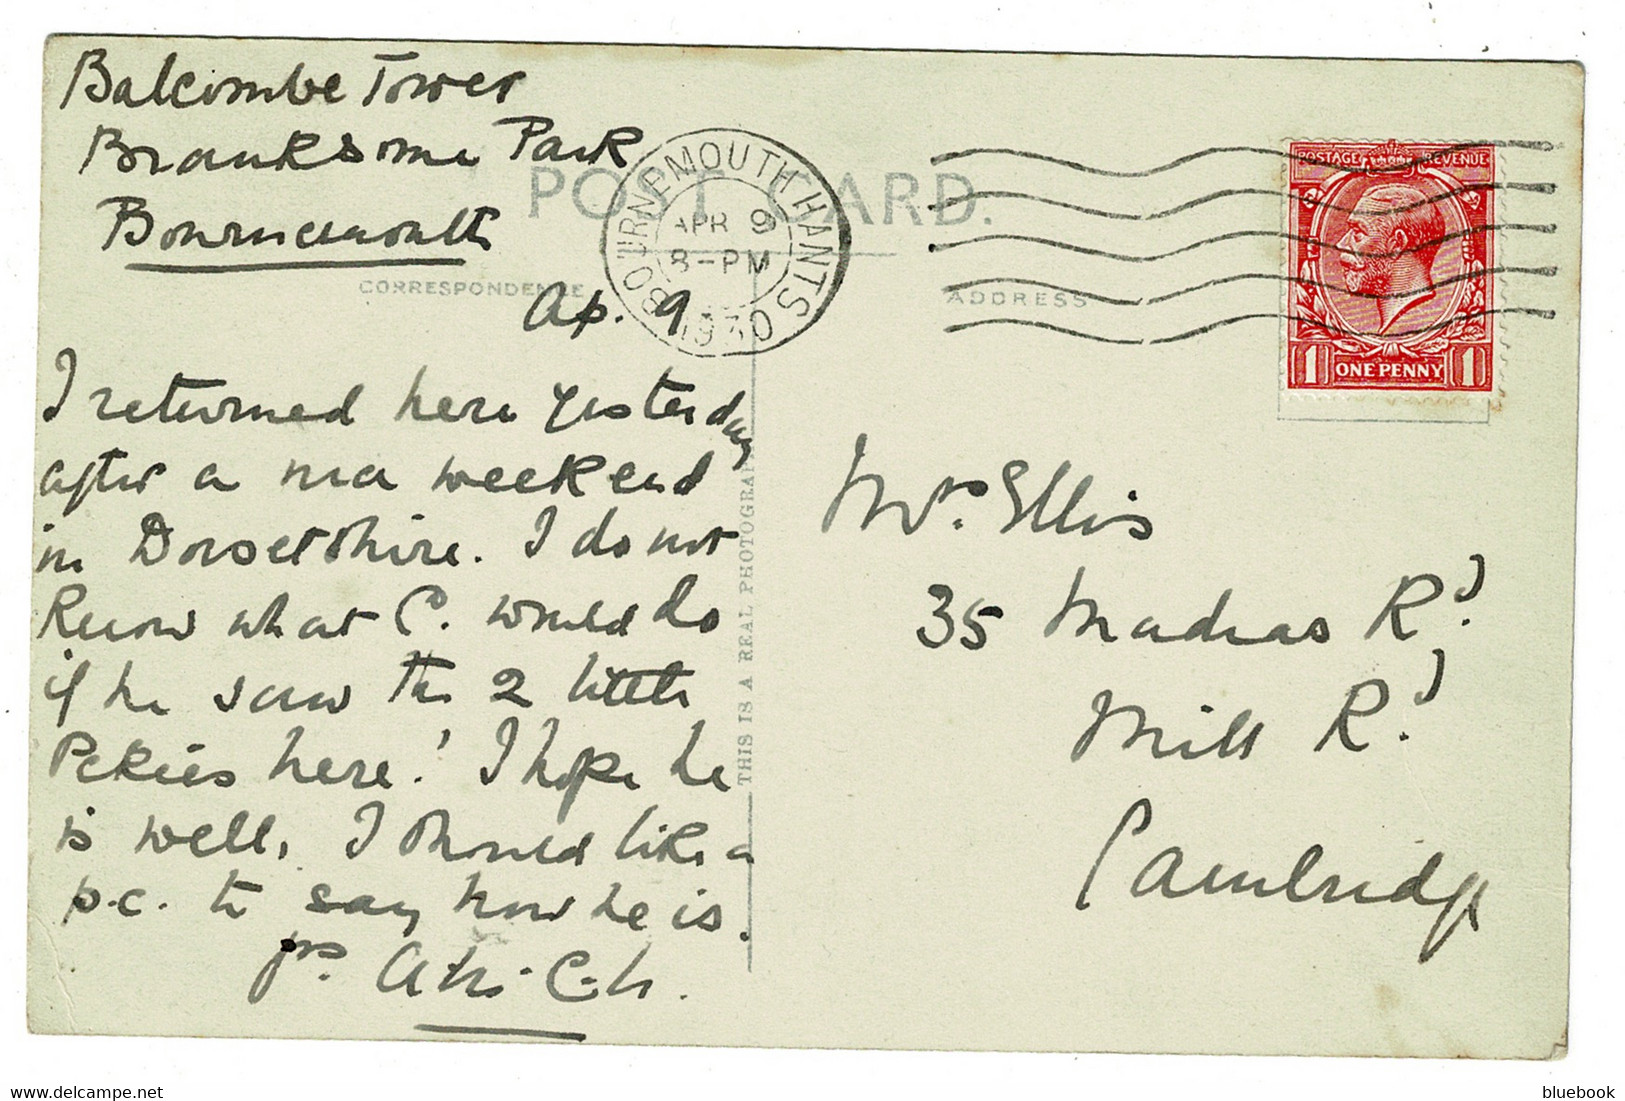 Balcombe Tower
Branksome Park
Bournemouth
POST CARD.
BOURNEMOUTH HANTS
APR 9
8-PM
1930
POSTAGE REVENUE
1 ONE PENNY 1
CORRESPONDENCE
ADDRESS
Ap. 9
I returned here yesterday
after a weekend
in Dorsetshire. I do not
know what C. would do
if he saw the 2 little
Pekies here! I hope he
is well. I should like a
p.c. to say how he is.
yrs.
THIS IS A REAL PHOTOGRAPH
Mrs. Ellis
35 Madras Rd.
Mill Rd.
Cambridge
bluebook